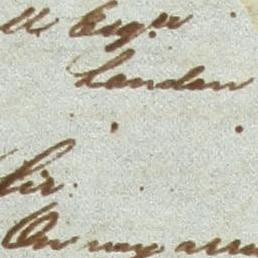 ll Esqr
London
Sir
On my arri